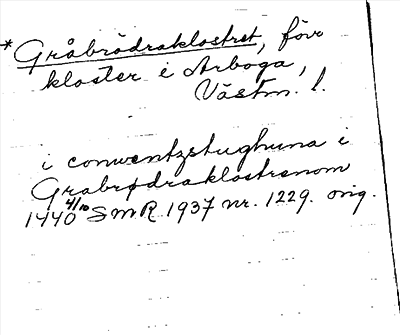 *Gråbrödraklostret, förr
kloster i Arboga,
Västm. l.
i conwentzstughuna i
Grabrødraklostrenom
1440 4/10 SMR 1937 nr. 1229. orig.